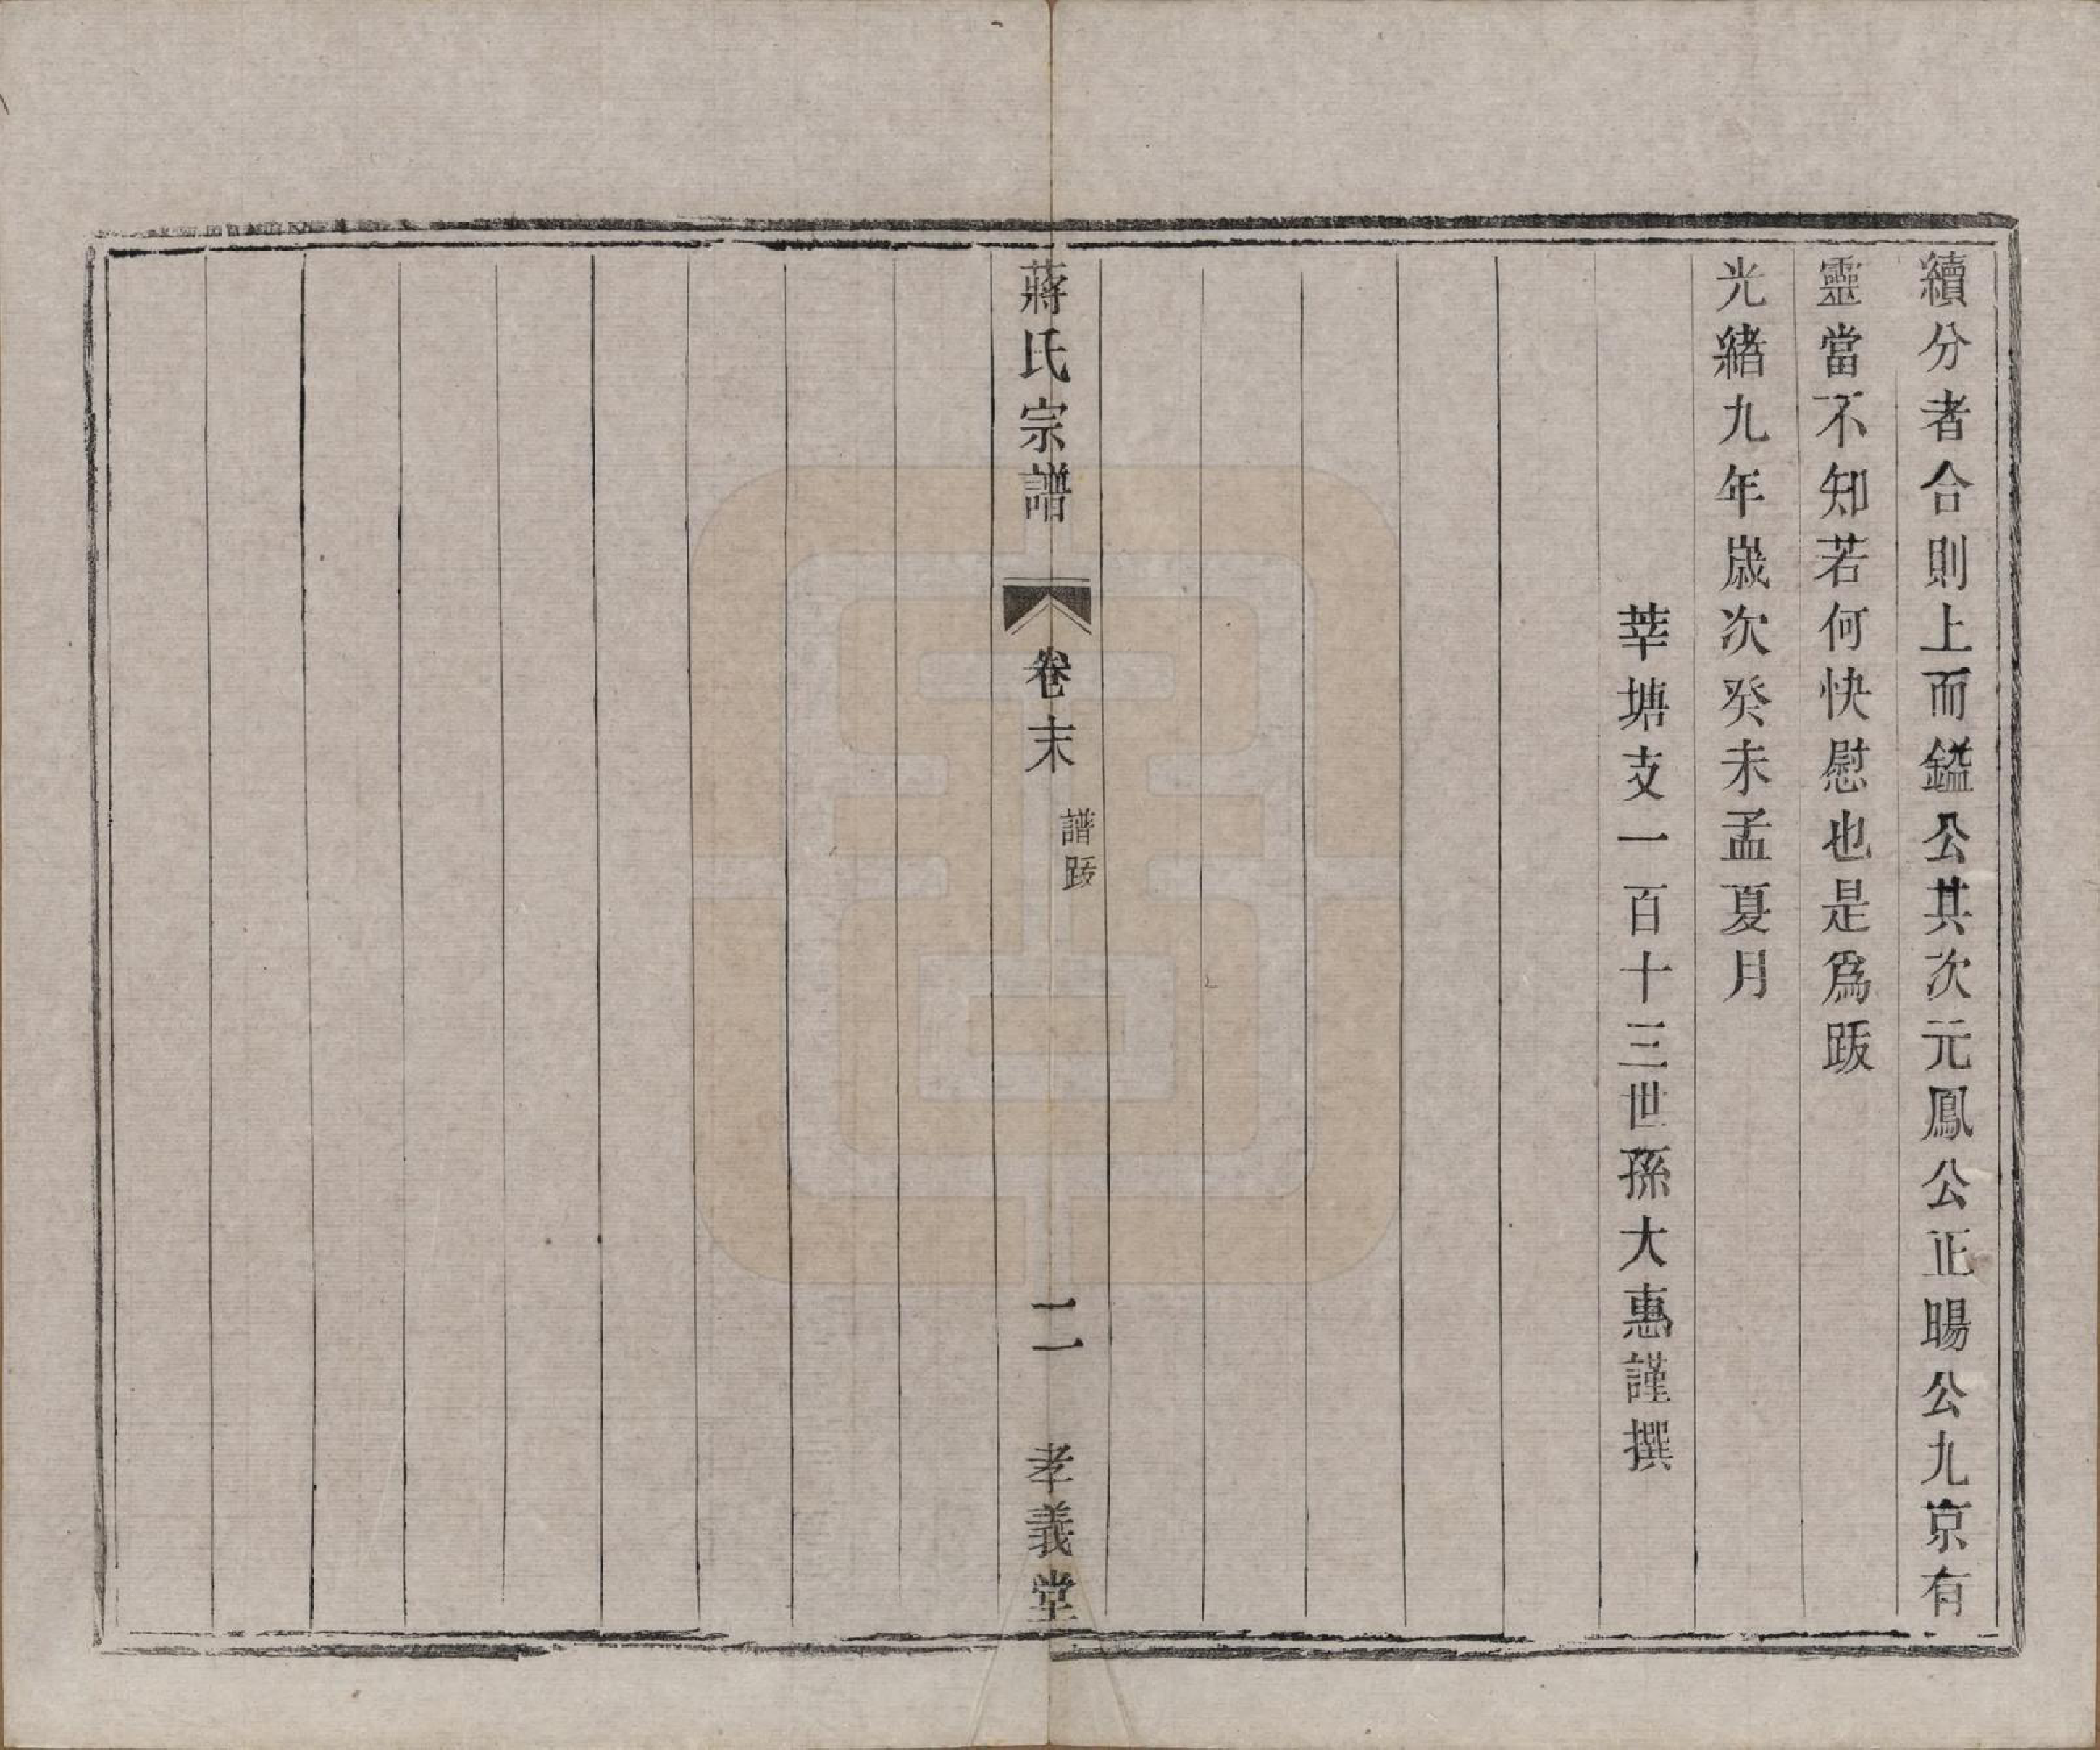 續分者合則上而鎰公其次元鳳公正暘公九京有
靈當不知若何快慰也是爲跋
光緒九年歲次癸未孟夏月
莘塘支一百十三世孫大惠謹撰
蔣氏宗譜
卷末
譜跋
二
孝義堂